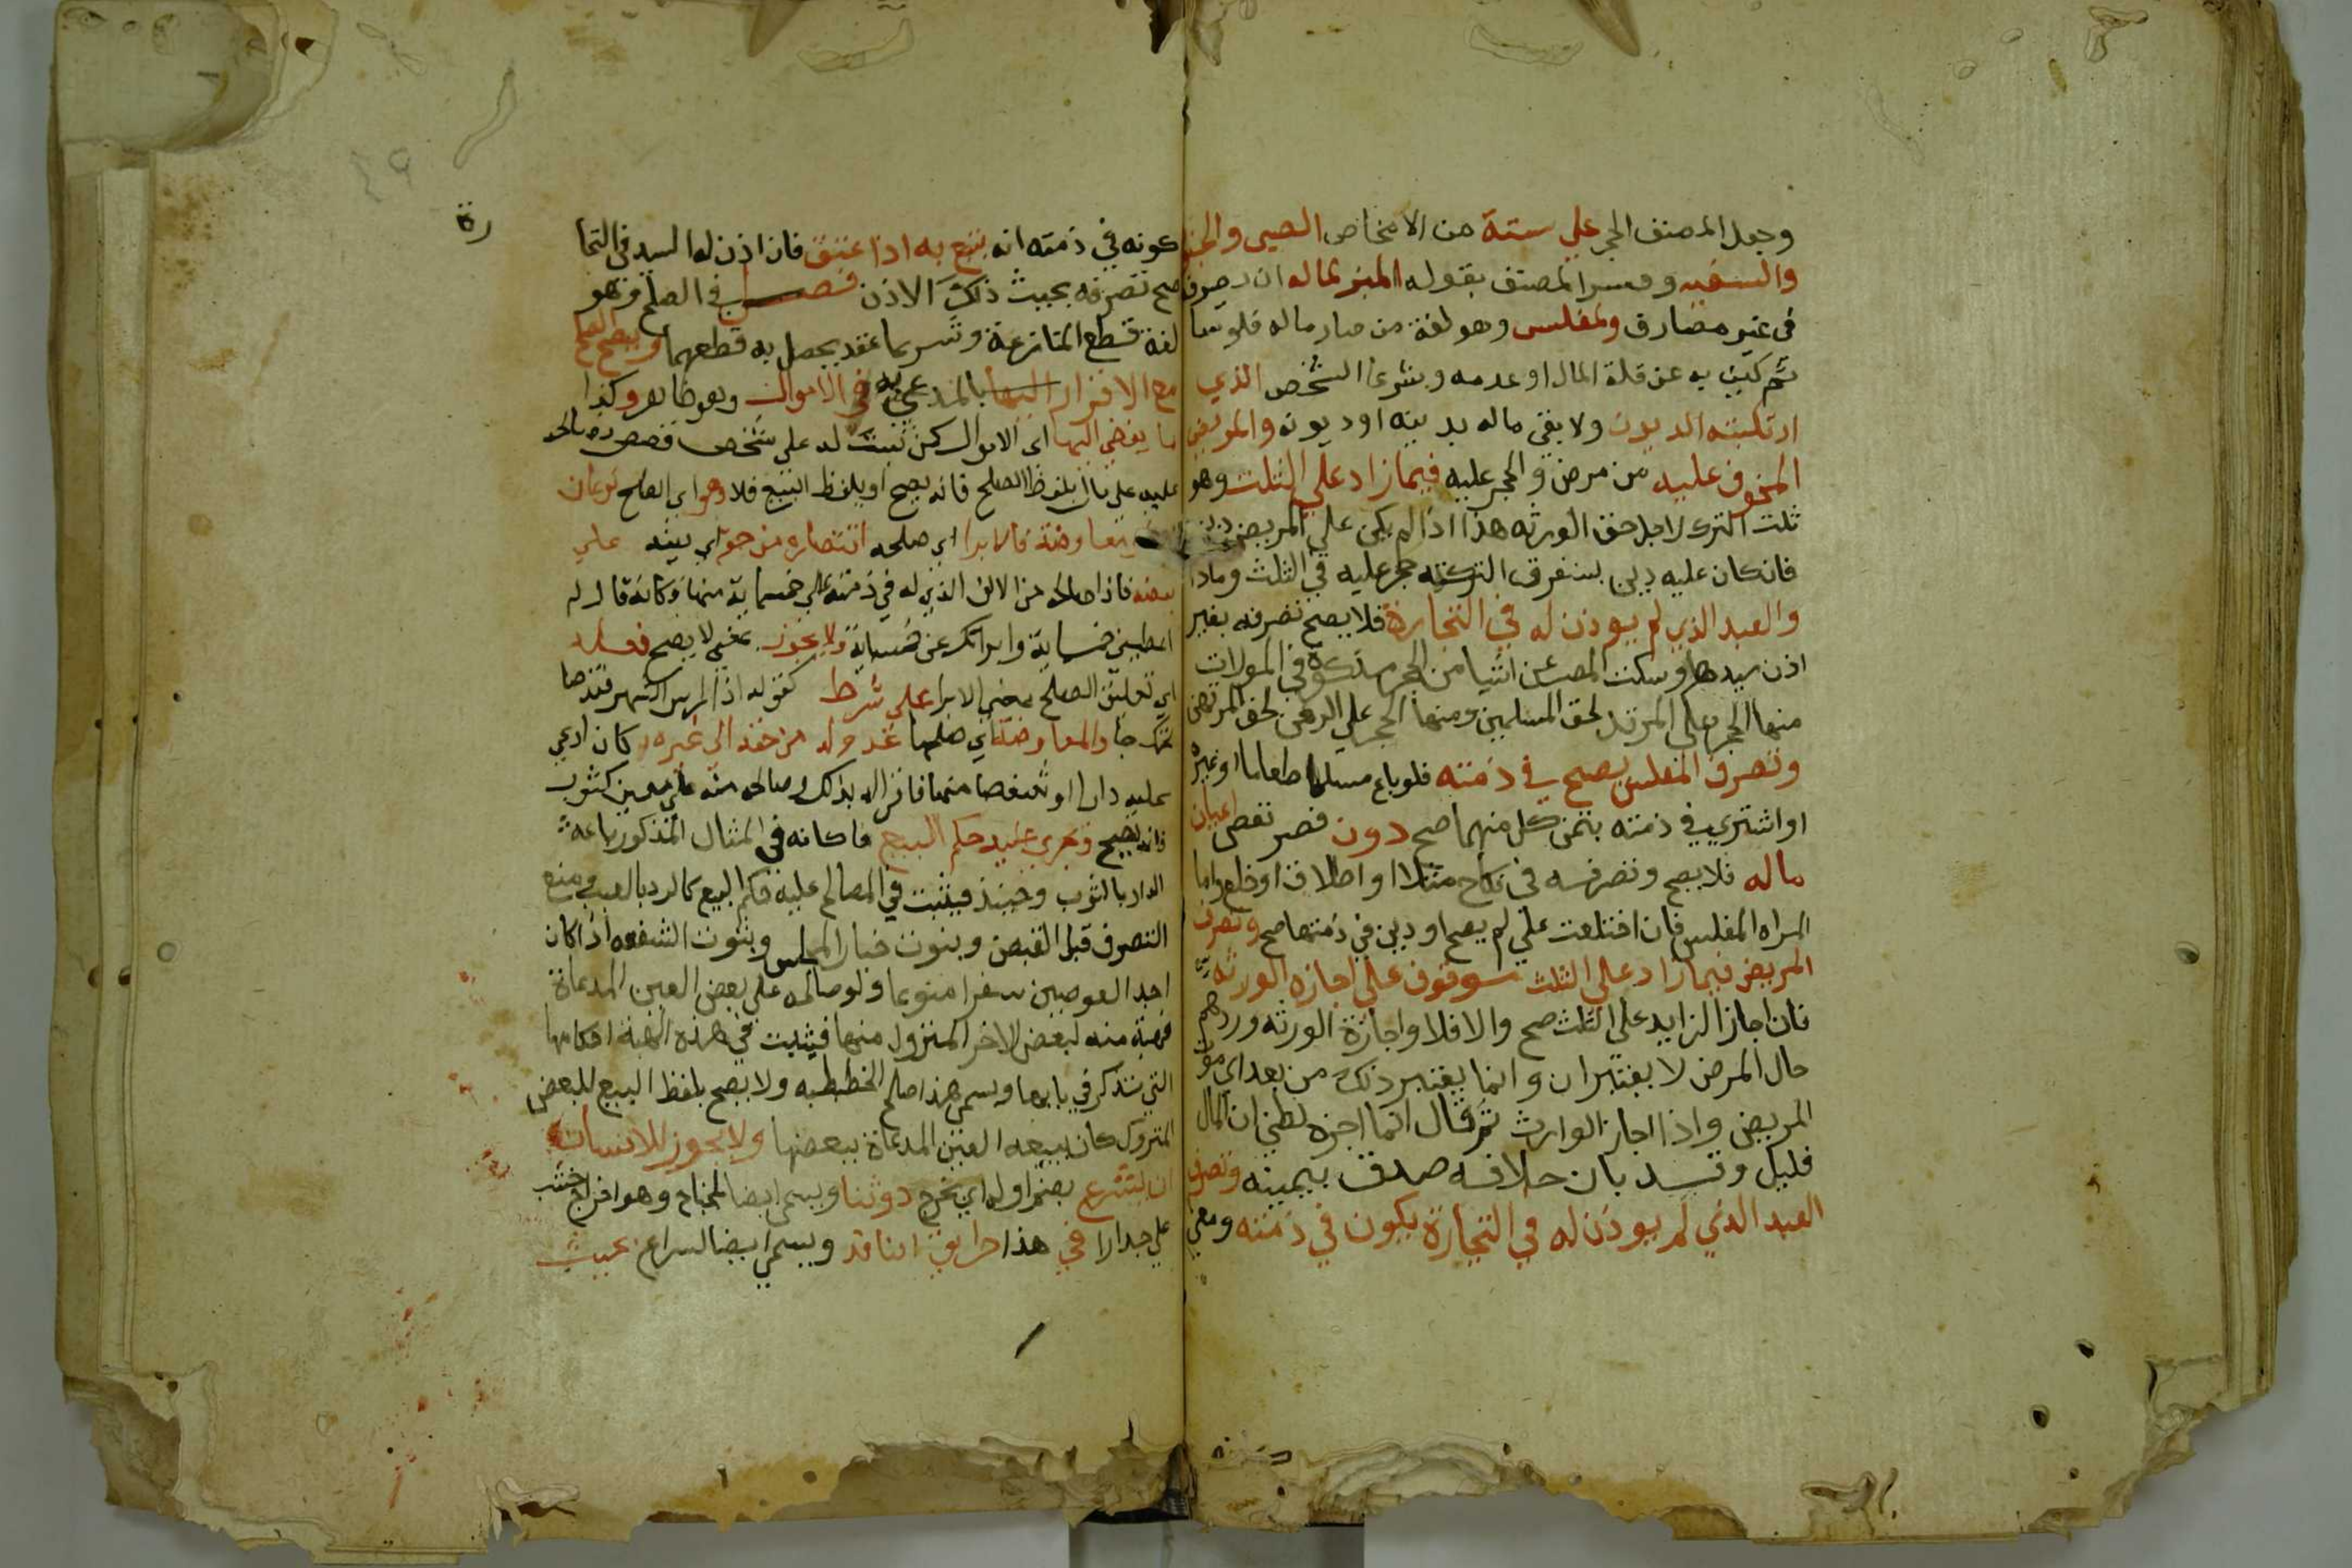 وجعل المصنف الحجر علي ستة من الاشخاص الصبى والمجنون
والسفيه وفسر المصنف بقوله المبزر لماله ان يصرفه
فى غير مصارق والمفلس وهو لغة من صار ماله فلوسا
ثم كنى به عن قلة المال او عدمه وشرعا الشخص الذي
ارتكبته الديون ولا يفى ماله بدينه او ديونه والمريض
المخوف عليه من مرض والحجر عليه فيما زاد علي الثلث وهو
ثلث التركه لاجل حق الورثه هذا اذا لم يكن على المريض دين
فان كان عليه دين يستغرق التركته حجر عليه في الثلث وما زاد
والعبد الذي لم يوذن له في التجارة فلا يصح تصرفه بغير
اذن سيده وسكت المص عن اشيا من الحجر مذكورة في المطولات
منها الحجر على المرتد لحق المسلمين ومنها الحجر علي الرهن لحق المرتهن
وتصرف المفلس يصح في ذمته فلو باع سلما طعاما او غيره
او اشتري في ذمته بثمن كل منهما صح دون تصرفه فى اعيان
ماله فلا يصح وتصرفه فى نكاح مثلا او اطلاق او خلع واما
المراه المفلس فان اختلعت علي لم يصح او دين في ذمتها صح وتصرف
المريض فيما زاد علي الثلث موقوف علي اجازه الورثه
فان اجاز الزايد على الثلث صح والا فلا واجازة الورثه وردهم
حال المرض لا يعتبران وانما يعتبر ذلك من بعد اي موت
المريض واذا اجاز الوارث ثم قال انما اجزه لظني ان المال
قليل وقد بان خلافه صدق بيمينه وتصرف
العبد الذي لم يوذن له في التجارة يكون في ذمته ومعني
كونه في ذمته انه يتبع به اذا عتق فان اذن له السيد فى التجا
رة
صح تصرفه بحيث ذلك الاذن فصل في الصلح وهو
لغة قطع المنازعة وشرعا عقد يحصل به قطعها ويصح الصلح
مع الاقرار بالمدعي به في الاموال وهو ظاهر وكذا
ما يفضي اليها اى الاموال كمن ثبت له على شخص قصاص فصالحه
عليه على مال بلفظ الصلح فانه يصح او بلفظ البيع فلا وهو اي الصلح نوعان
ومعاوضة فالابرا اي صلحه اقتصاره من حقه اي دينه علي
بعضه فاذا صالحه من الالف الذي له في ذمته علي خمسماية منها فكانه قال له
اعطيني خمسماية وابراتك عن خمسماية ولا يجوز بمعنى لا يصح فعله
اي تعليق الصلح بمعني الابرا علي شرط كقوله اذا جا راس الشهر فقد صا
لحتك والمعاوضة اي صلحها عدوله من حقه الى غيره كان ادعي
عليه دارا او شقصا منها فاقر له بذلك وصالحه منه علي معين كثوب
فانه يصح ويجري عليه حكم البيع فا كانه فى المثال المذكور باعه
الدار بالثوب وحينذ فيثبت في المصالح عليه حكم البيع كالرد بالعيب ومنع
التصرف قبل القبض وبثوت خيار المجلس وبثوت الشفعه اذا كان
احد العوضين ولو صالحه على بعض العين المدعاة
فهبة منه لبعض الاخر المتزول منها فيثبت في هذه الهبة احكامها
التي تذكر في بابها ويسمى هذا صلح الخطيطيه ولا يصح بلفظ البيع للبعض
المتروك كان يبيعه العين المدعاة ببعضها ولا يجوز للانسان
ان يشرع بضم اوله اي يخرج روشنا ويسمى ايضا لجناح وهو اخراج خشب
علي جدارا في هذا طريق انافذ ويسمى ايضا السراع بحيث